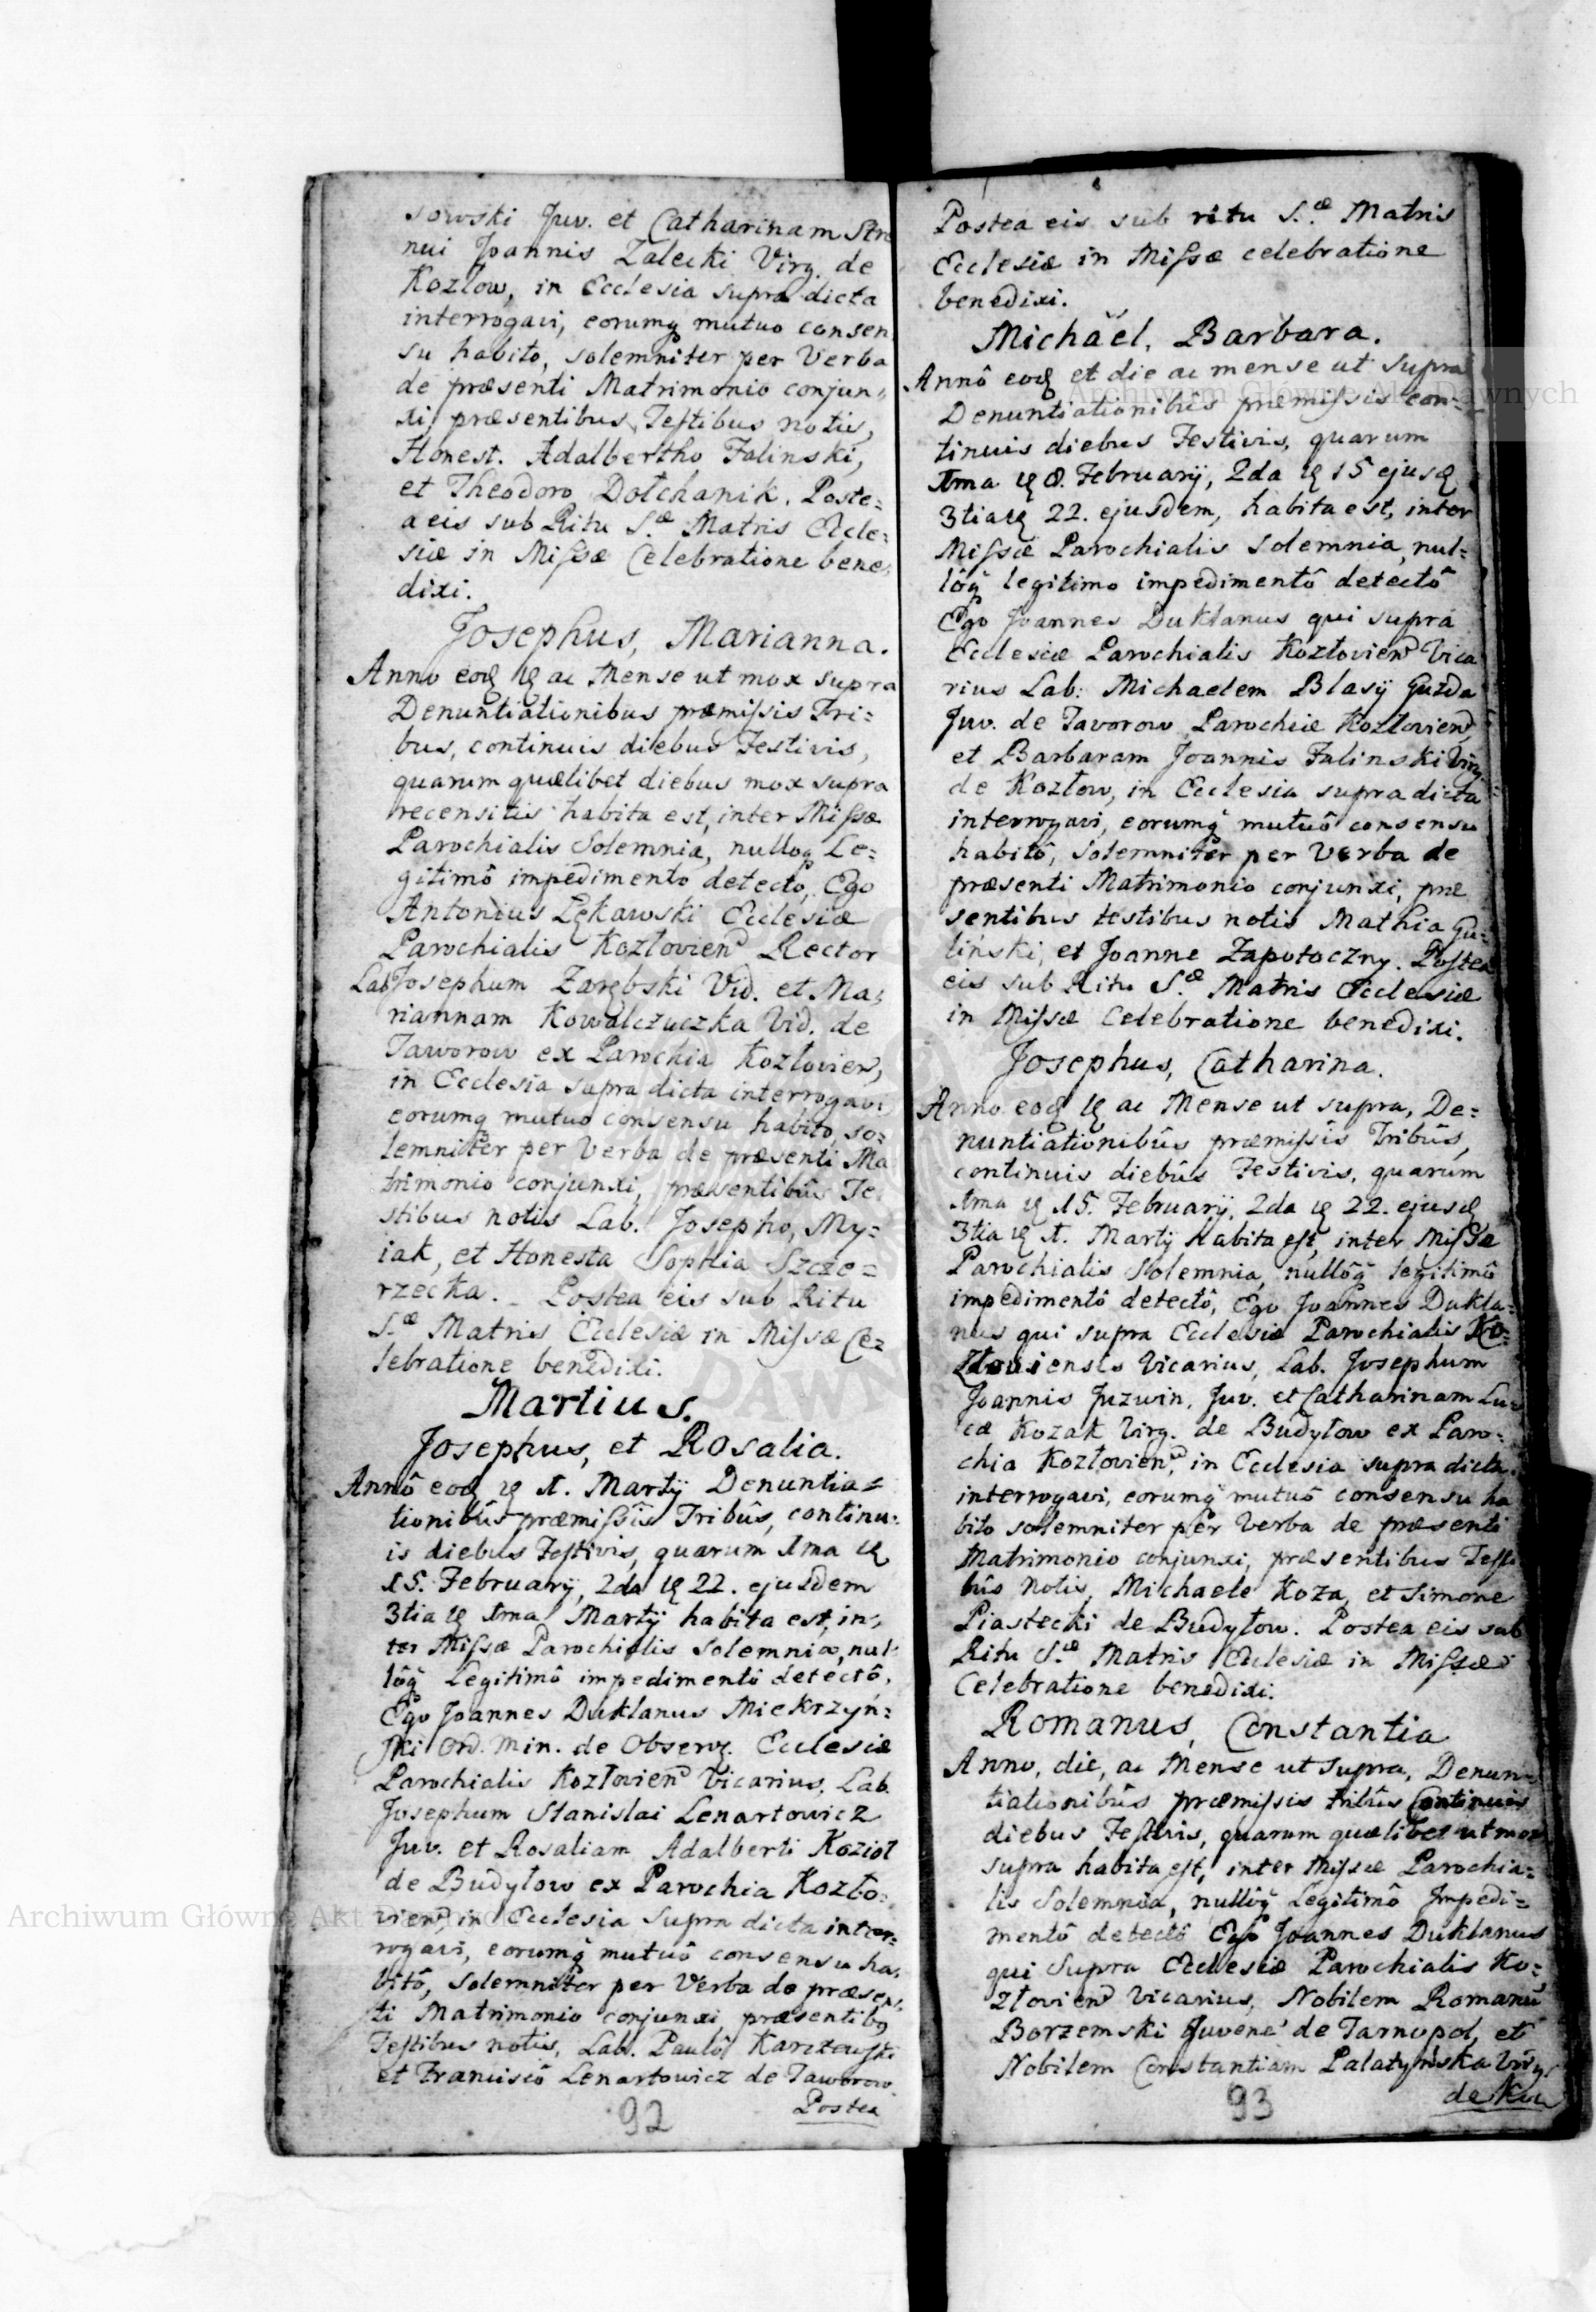 sowski Juv. et Catharinam Stre
nui Joannis Zalecki Virg. de
Kozłow, in Ecclesia supra dicta
interrogavi, eorumq mutuo consen
su habito, solemniter per Verba
de præsenti Matrimonio conjun=
xi, præsentibus Testibus notis,
Honest. Adalbertho Falinski,
et Theodoro Dołchanik. Poste=
a eis sub Ritu S.æ Matris Eccle=
siæ in Missæ Celebratione bene=
dixi.
Josephus, Marianna.
Anno eoq ac Mense ut mox supra
Denuntiationibus præmissis Tri=
bus, continuis diebus Festivis,
quarum quælibet diebus mox supra
recensitis habita est, inter Missæ
Parochialis Solemnia, nulloq Le=
gitimô impedimento detecto, Ego
Antonius Lękawski Ecclesiæ
Parochialis Kozłovien Rector
Lab Josephum Zarębski Vid. et Ma=
riannam Kowalczuczka Vid. de
Taworow ex Parochia Kozłovien,
in Ecclesia supra dicta interrogavi
eorumq mutuo consensu habito, so=
lemniter per Verba de præsenti Ma
trimonio conjunxi, præsentibûs Te
stibus notis Lab. Josepho, My=
iak, et Honesta Sophia Szcze=
rzecka. _ Postea eis sub Ritu
S.æ Matris Ecclesiæ in Missæ Ce=
lebratione benedixi.
Martius.
Josephus, et Rosalia.
Annô eoq 1. Martÿ Denuntia=
tionibûs præmissîs Tribûs, continu=
is diebus Festivis, quarum 1ma
15. Februarÿ, 2da 22. ejusdem
3tia 1ma Martÿ habita est, in=
ter Missæ Parochialis solemnia, nul=
lôq Legitimô impedimentô detectô,
Ego Joannes Duklanus Miekrzyń=
ski Ord. Min. de Observ. Ecclesiæ
Parochialis Kozłovien Vicarius, Lab.
Josephum Stanislai Lenartowicz
Juv. et Rosaliam Adalberti Kozioł
de Budyłow ex Parochia Kozło=
vien, in Ecclesia supra dicta inter=
rogavi, eorumq mutuô consensu ha=
bitô, solemniter per Verba de præsen=
ti Matrimonio conjunxi, præsentibq
Testibus notis, Lab. Paulô Karczewski
et Franciscô Lenartowicz de Taworow
Postea
92
Postea eis sub ritu S.æ Matris
Ecclesiæ in Missæ celebratione
benedixi.
Michäel, Barbara.
Annô eoq et die ac mense ut supra
Denuntiationibus præmissis con=
tinuis diebus Festivis, quarum
1ma 8. Februarÿ, 2da 15 ejusq
3tia 22. ejusdem, habita est, inter
Missæ Parochialis Solemnia, nul=
lôq legitimo impedimentô detectô
Ego Joannes Duklanus qui supra
Ecclesiæ Parochialis Kozłovien Vica
rius Lab: Michaelem Blasÿ Guzda
Juv. de Tavorow Parochiæ Kozłovien,
et Barbaram Joannis Falinski Virg.
de Kozłow, in Ecclesia supra dicta
interrogavi, eorumq mutuô consensu
habitô, solemniter per Verba de
præsenti Matrimonio conjunxi, præ
sentibus testibus notis Mathia Gu=
liński, et Joanne Zapotoczny. Postea
eis sub Ritu S.æ Matris Ecclesiæ
in Missæ Celebratione benedixi.
Josephus, Catharina.
Anno eoq ac Mense ut supra, De=
nuntiationibûs præmissis Tribûs,
continuis diebûs Festivis, quarum
1ma 15. Februarÿ, 2da 22. ejusq
3tia 1. Martÿ habita est, inter Missæ
Parochialis Solemnia, nullôq legitimô
impedimentô detectô, Ego Joannes Dukla=
nus qui supra Ecclesiæ Parochialis Ko=
złoviensis Vicarius, Lab. Josephum
Joannis Juzwin, Juv. et Catharinam Lu=
cæ Kozak Virg. de Budyłow ex Paro=
chia Kozłovien, in Ecclesia supra dicta
interrogavi, eorumq mutuô consensu ha
bito solemniter per Verba de præsenti
Matrimonio conjunxi, præsentibus Testi
bûs Notis, Michaele Koza, et Simone
Piastecki de Budyłow. Postea eis sub
Ritu S.æ Matris Ecclesiæ in Missæ
Celebratione benedixi.
Romanus, Constantia
Anno, die, ac Mense ut supra, Denun=
tiationibûs præmissis tribûs Continuis
diebus Festivis, quarum quælibet ut mox
supra habita est, inter Missæ Parochia=
lis Solemnia, nullôq Legitimô Impedi=
mentô detectô Ego Joannes Duklanus
qui Supra Ecclesiæ Parochialis Ko=
złovien Vicarius, Nobilem Romanū
Borzemski Juvene de Tarnopol, et
Nobilem Constantiam Palatyńska Virg.
de
93
Archiwum Główne Akt Dawnych
Archiwum Główne Akt